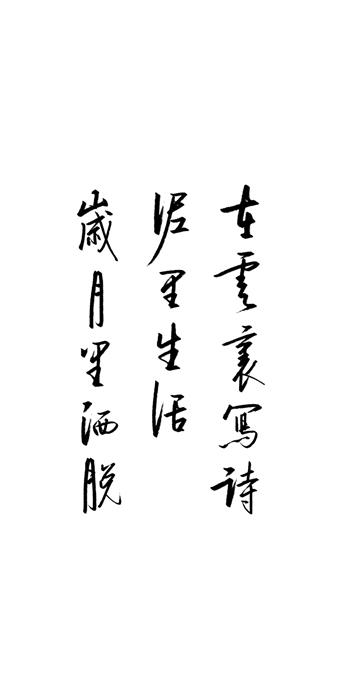 在雲裏寫詩
泥里生活
歲月里洒脱